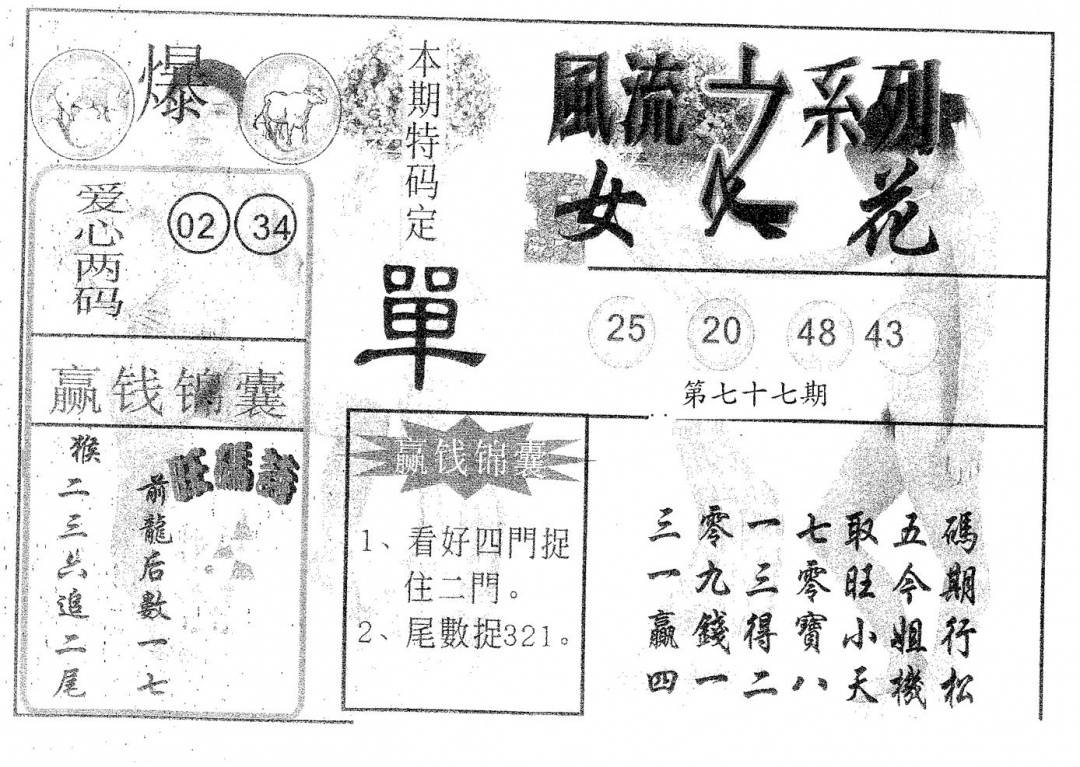 爆
爱心两码
02 34
赢钱锦囊
旺碼詩
前龍后數一七
猴二三六追二尾
本期特码定
單
赢钱锦囊
1、看好四門捉
住二門。
2、尾數捉321。
風流之系列
女人花
25 20 48 43
第七十七期
三零一七取五碼
一九三零旺今期
贏錢得寶小姐行
四一二八天機松